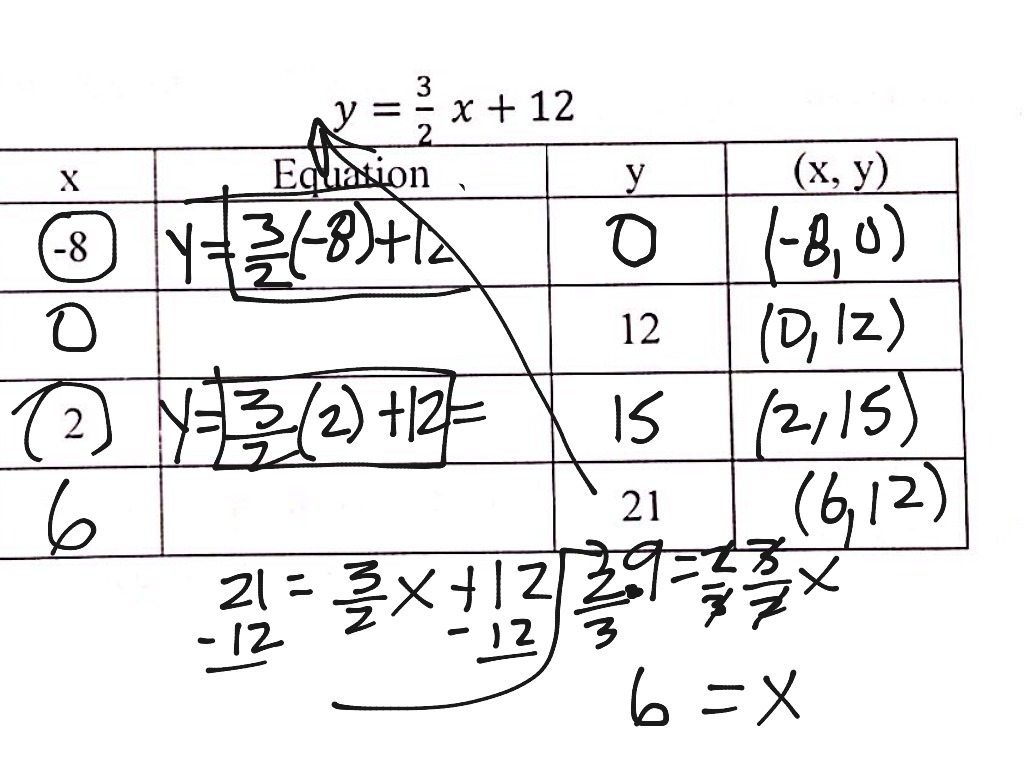 y = 3/2 x + 12
x Equation y (x, y)
-8 y = 3/2 (-8) + 12 0 (-8, 0)
0 12 (0, 12)
2 y = 3/2 (2) + 12 = 15 (2, 15)
6 21 (6, 12)
21 = 3/2 x + 12 2/3 · 9 = 2/3 3/2 x
- 12 - 12
6 = x